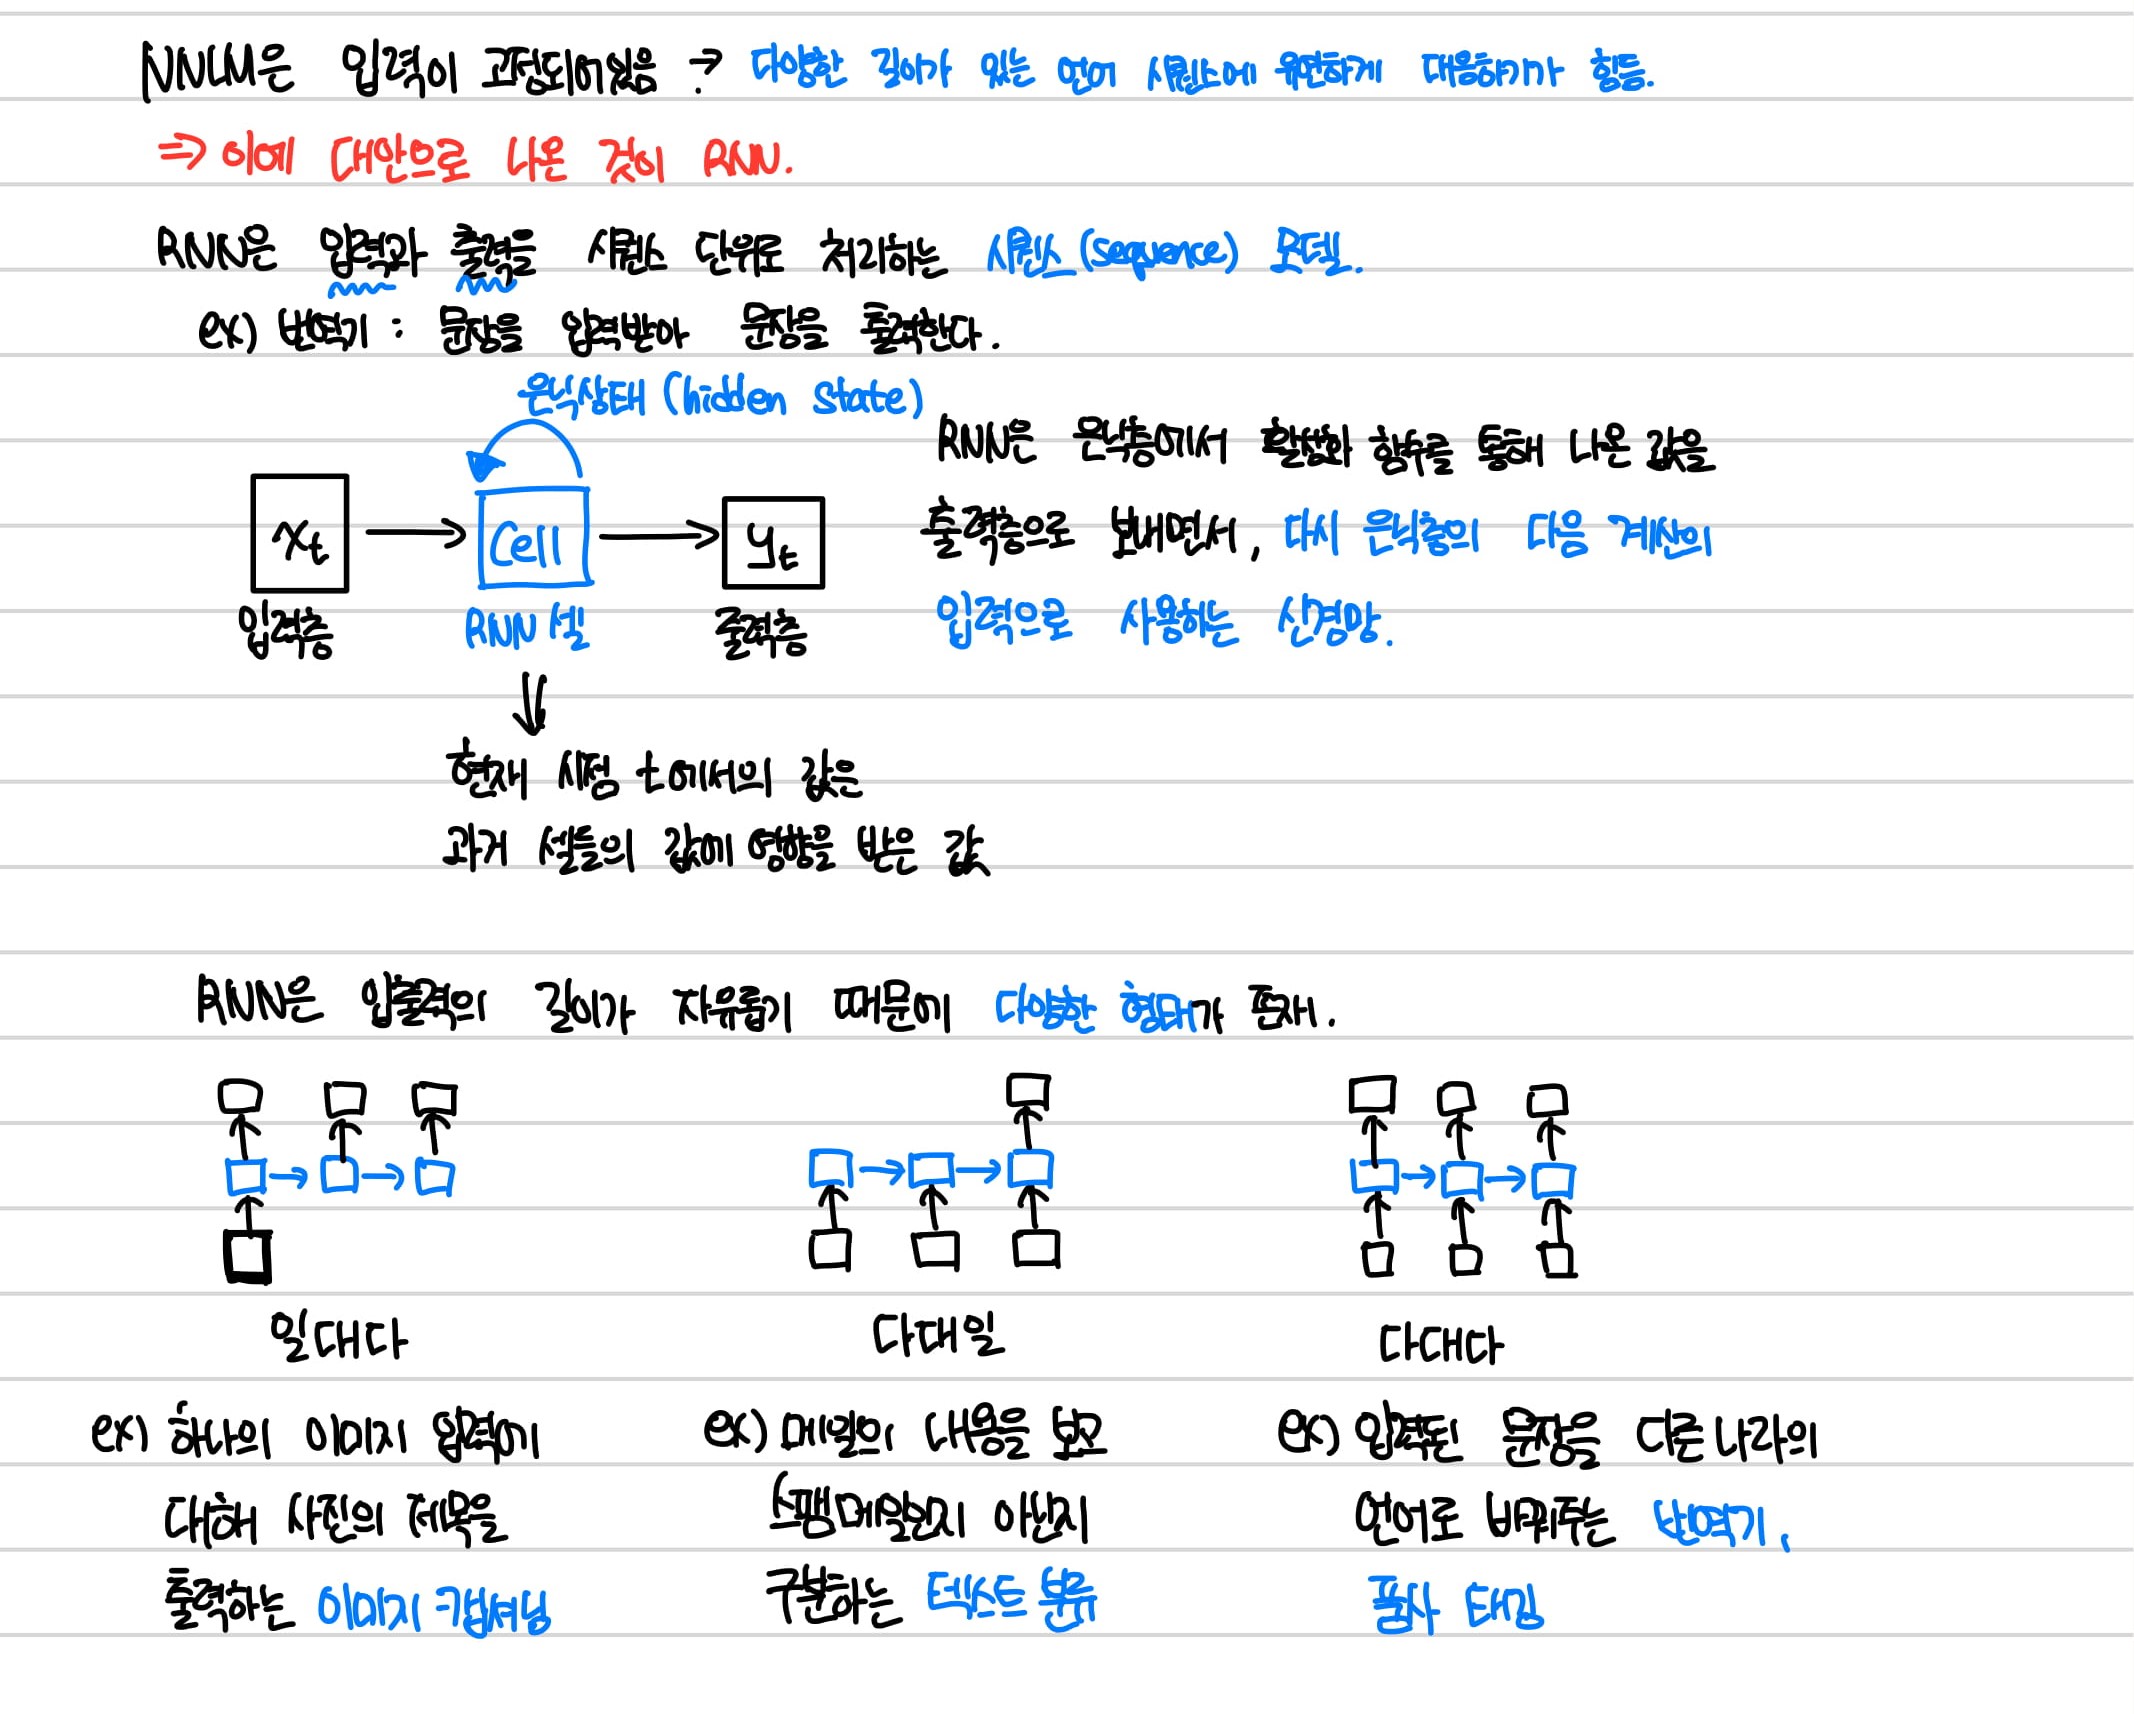 NNLM은 입력이 고정되어있음 → 다양한 길이가 있는 언어 시퀀스에 유연하게 대응하기가 힘듦.
⇒ 이에 대안으로 나온 것이 RNN.
RNN은 입력과 출력을 시퀀스 단위로 처리하는 시퀀스 (sequence) 모델.
ex) 번역기 : 문장을 입력받아 문장을 출력한다.
은닉상태 (hidden state)
xt
Cell
yt
입력층
RNN 셀
출력층
RNN은 은닉층에서 활성화 함수를 통해 나온 값을
출력층으로 보내면서, 다시 은닉층의 다음 계산의
입력으로 사용하는 신경망.
현재 시점 t에서의 값은
과거 셀들의 값에 영향을 받은 값
RNN은 입출력의 길이가 자유롭기 때문에 다양한 형태가 존재.
일대다
다대일
다대다
ex) 하나의 이미지 입력에
대해 사진의 제목을
출력하는 이미지 캡셔닝
ex) 메일의 내용을 보고
스팸메일인지 아닌지
구분하는 텍스트 분류
ex) 입력된 문장을 다른나라의
언어로 바꿔주는 번역기,
품사 태깅